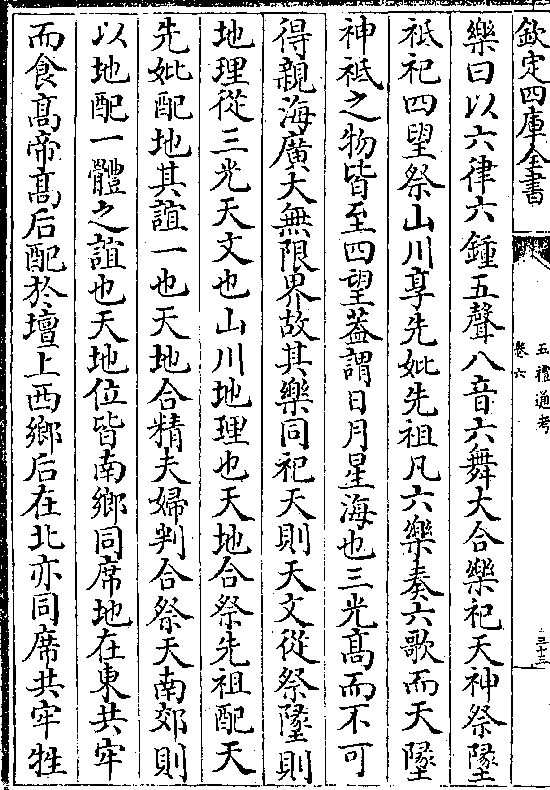 欽定四庫全書
五禮通考
卷六
三十三
樂曰以六律六鍾五聲八音六舞大合樂祀天神祭墬
祗祀四望祭山川享先妣先祖凡六樂奏六歌而天墬
神祗之物皆至四望蓋謂日月星海也三光髙而不可
得親海廣大無限界故其樂同祀天則天文從祭墬則
地理從三光天文也山川地理也天地合祭先祖配天
先妣配地其誼一也天地合精夫婦判合祭天南郊則
以地配一體之誼也天地位皆南鄉同席地在東共牢
而食髙帝髙后配於壇上西鄉后在北亦同席共牢牲